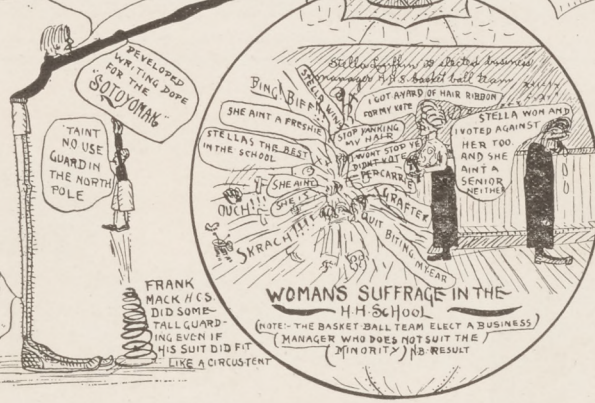 DEVELOPED
WRITING DOPE
FOR THE
"SOTOYOMAN"
'TAINT
NO USE
GUARDIN
THE NORTH
POLE
FRANK
MACK H.C.S.
DID SOME-
TALL GUARD-
ING EVEN IF
HIS SUIT DID FIT
LIKE A CIRCUS TENT
Stella is elected business
manager H.H.S. basket ball team
BING! BIFF!
STELLA WINS
I GOT A YARD OF HAIR RIBBON
FOR MY VOTE
SHE AINT A FRESHIE
STELLAS THE BEST
IN THE SCHOOL
STOP YANKING
MY HAIR
I WONT STOP YE
DIDNT VOTE
PER CARRIE
SHE AINT
SHE IS
OUCH!!!
SKRACH!!!!
GRAFTER
QUIT BITING MY EAR
STELLA WON AND
I VOTED AGAINST
HER TOO.
AND SHE
AINT A
SENIOR
NEITHER
WOMAN'S SUFFRAGE IN THE
H.H. SCHOOL
(NOTE:- THE BASKET BALL TEAM ELECT A BUSINESS
MANAGER WHO DOES NOT SUIT THE
MINORITY) N.B. RESULT